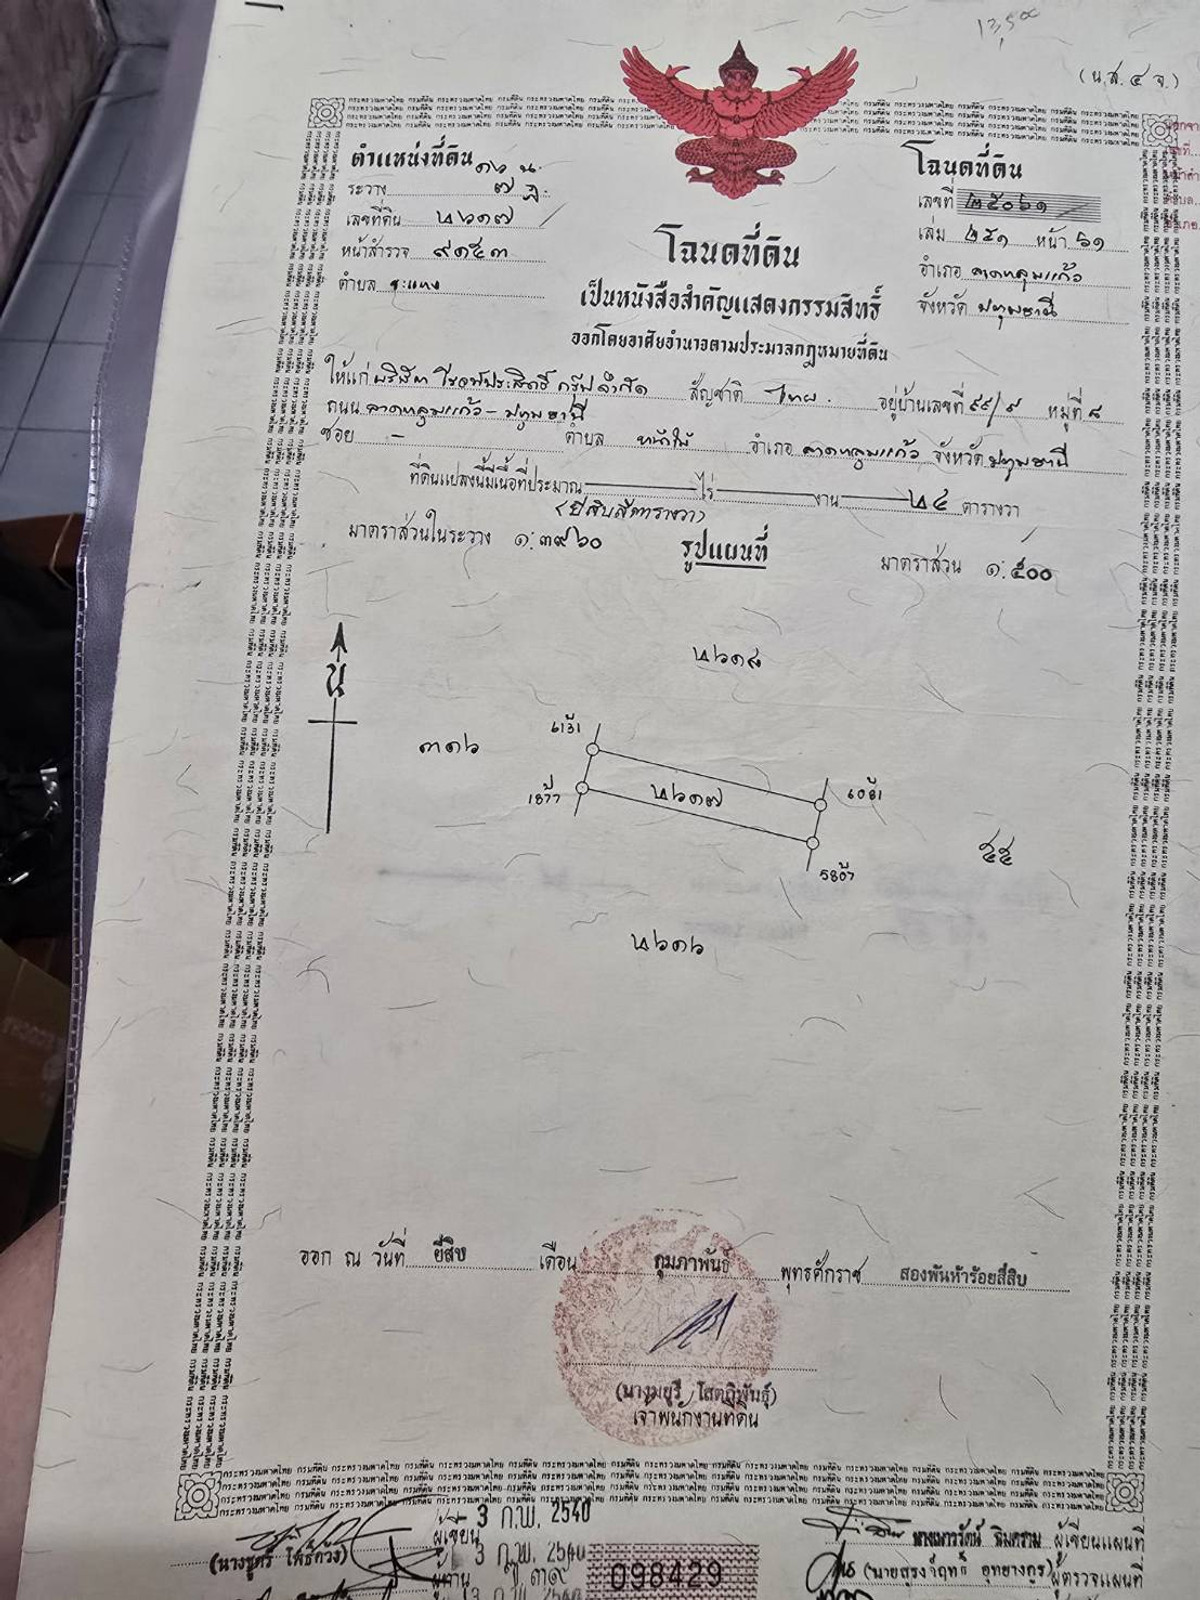 (น.ส. ๔ จ.)
ตำแหน่งที่ดิน
ระวาง
เลขที่ดิน ๗๖๑๗
หน้าสำรวจ ๙๑๕๓
ตำบล ระแหง
โฉนดที่ดิน
เลขที่ ๒๕๐๖๑
เล่ม ๒๕๑ หน้า ๖๑
อำเภอ ลาดหลุมแก้ว
จังหวัด ปทุมธานี
โฉนดที่ดิน
เป็นหนังสือสำคัญแสดงกรรมสิทธิ์
ออกโดยอาศัยอำนาจตามประมวลกฎหมายที่ดิน
ให้แก่ บริษัท โรจน์ประสิทธิ์ กรุ๊ป จำกัด สัญชาติ ไทย อยู่บ้านเลขที่ ๙๙/๙ หมู่ที่ ๘
ถนน ลาดหลุมแก้ว - ปทุมธานี
ซอย - ตำบล หน้าไม้ อำเภอ ลาดหลุมแก้ว จังหวัด ปทุมธานี
ที่ดินแปลงนี้มีเนื้อที่ประมาณ ไร่ งาน ๒๔ ตารางวา
(ยี่สิบสี่ตารางวา)
มาตราส่วนในระวาง ๑:๓๙๖๐ รูปแผนที่ มาตราส่วน ๑:๕๐๐
น
๗๖๑๘
๓๑๖
๗๖๑๗
๔๔
๗๖๑๖
ออก ณ วันที่ ยี่สิบ เดือน กุมภาพันธ์ พุทธศักราช สองพันห้าร้อยสี่สิบ
เจ้าพนักงานที่ดิน
กระทรวงมหาดไทย กรมที่ดิน
ผู้เขียน - 3 ก.พ. 2540
3 ก.พ. 2540
098429
ผู้เขียนแผนที่
ผู้ตรวจแผนที่